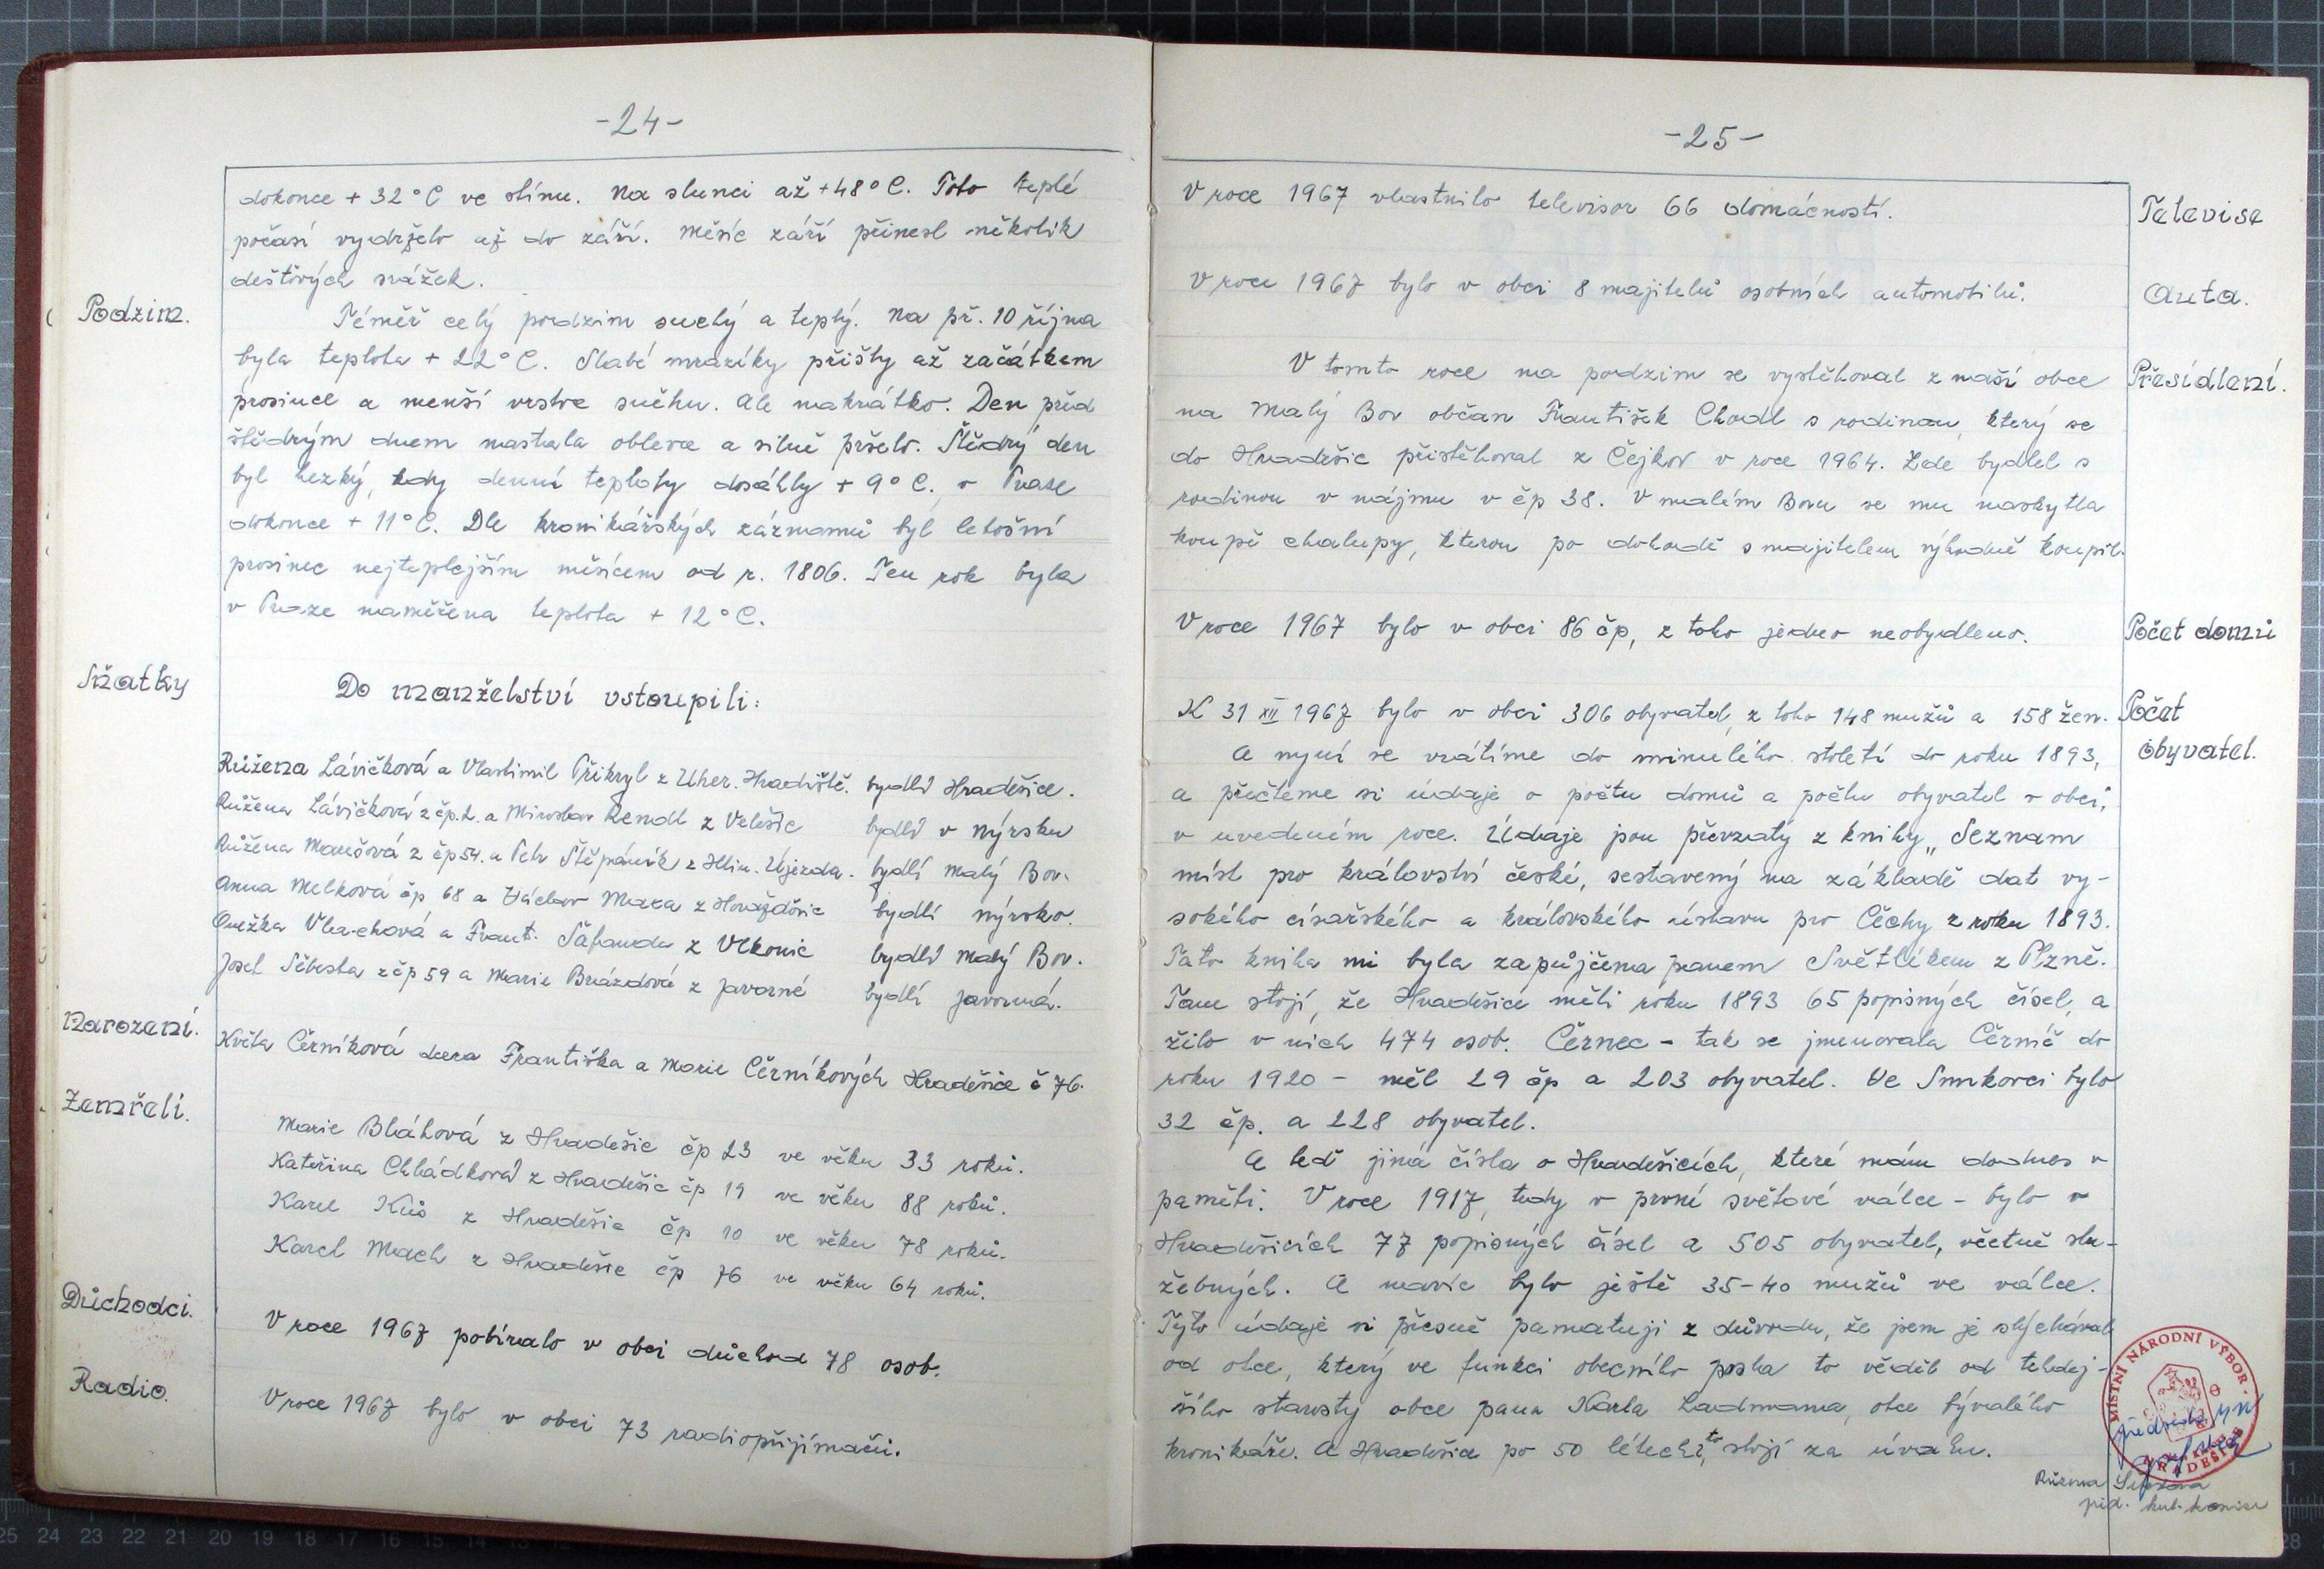 -24-
dokonce + 32°C ve stínu. Na slunci až +48°C. Toto teplé
počasí vydrželo až do září. Měsíc září přinesl několik
dešťových srážek.
Podzim.
Téměř celý podzim suchý a teplý. Na př. 10 října
byla teplota + 22°C. Slabé mrazíky přišly až začátkem
prosince a menší vrstva sněhu. Ale nakrátko. Den před
štědrým dnem nastala obleva a silně pršelo. Štědrý den
byl hezký, kdy denní teploty dosáhly + 9°C., v Praze
dokonce + 11°C. Dle kronikářských záznamů byl letošní
prosinec nejteplejším měsícem od r. 1806. Ten rok byla
v Praze naměřena teplota + 12°C.
Sňatky
Do manželství vstoupili:
Růžena Lávičková a Vlastimil Přikryl z Uher. Hradiště. bydlí Hradešice.
Růžena Lávičková z čp.2. a Miroslav Rendl z Velešic bydlí v Nýrsku
Růžena Marešová z čp 54. a Petr Štěpáník z Hlin. Újezda. bydlí Malý Bor.
Anna Melková čp 68 a Václav Maxa z Horažďovic bydlí Nýrsko.
Anežka Vlachová a Frant. Šafanda z Vlkonic bydlí Malý Bor.
Josef Šebesta z čp 59 a Marie Brázdová z Javorné bydlí Javorná.
Narození.
Květa Černíková dcera Františka a Marie Černíkových Hradešice č 76.
Zemřelí.
Marie Bláhová z Hradešic čp 23 ve věku 33 roků.
Kateřina Chládková z Hradešic čp 19 ve věku 88 roků.
Karel Kůs z Hradešic čp 10 ve věku 78 roků.
Karel Mach z Hradešic čp 76 ve věku 64 roků.
Důchodci.
V roce 1967 pobíralo v obci důchod 78 osob.
Radio.
V roce 1967 bylo v obci 73 radiopřijímačů.
-25-
V roce 1967 vlastnilo televisor 66 domácností.
Televise
V roce 1967 bylo v obci 8 majitelů osobních automobilů.
Auta.
V tomto roce na podzim se vystěhoval z naší obce
Přesídlení.
na Malý Bor občan František Chodl s rodinou, který se
do Hradešic přistěhoval z Čejkov v roce 1964. Zde bydlel s
rodinou v nájmu v čp 38. V malém Boru se mu naskytla
koupě chalupy, kterou po dohodě s majitelem výhodně koupil.
V roce 1967 bylo v obci 86 čp, z toho jedno neobydleno.
Počet domů
K 31 XII 1967 bylo v obci 306 obyvatel, z toho 148 mužů a 158 žen.
Počet
obyvatel.
A nyní se vrátíme do minulého století do roku 1893,
a přečteme si údaje o počtu domů a počtu obyvatel v obci,
v uvedeném roce. Údaje jsou převzaty z knihy „Seznam
míst pro království české, sestavený na základě dat vy-
sokého císařského a královského ústavu pro Čechy z roku 1893.
Tato kniha mi byla zapůjčena panem Světlíkem z Plzně.
Tam stojí, že Hradešice měli roku 1893 65 popisných čísel, a
žilo v nich 474 osob. Černec - tak se jmenovala Černíč do
roku 1920 - měl 29 čp a 203 obyvatel. Ve Smrkovci bylo
32 čp. a 228 obyvatel.
A teď jiná čísla o Hradešicích, které mám dodnes v
paměti. V roce 1917, tedy v první světové válce - bylo v
Hradešicích 77 popisných čísel a 505 obyvatel, včetně slu-
žebných. A navíc bylo ještě 35-40 mužů ve válce.
Tyto údaje si přesně pamatuji z důvodu, že jsem je slýchával
od otce, který ve funkci obecního posla to věděl od tehdej-
šího starosty obce pana Karla Ladmana, otce bývalého
kronikáře. A Hradešice po 50 létech?, to stojí za úvahu.
MÍSTNÍ NÁRODNÍ VÝBOR
HRADEŠICE
Růžena
před. kul. komise